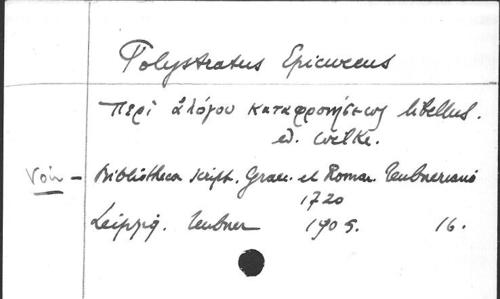 Polystratus Epicureus
Περὶ ἀλόγου καταφρονήσεως libellus.
ed. Wilke.
Voir - Bibliotheca script. Graec. et Roman. Teubneriana
1720
Leipzig. Teubner 1905. 16.